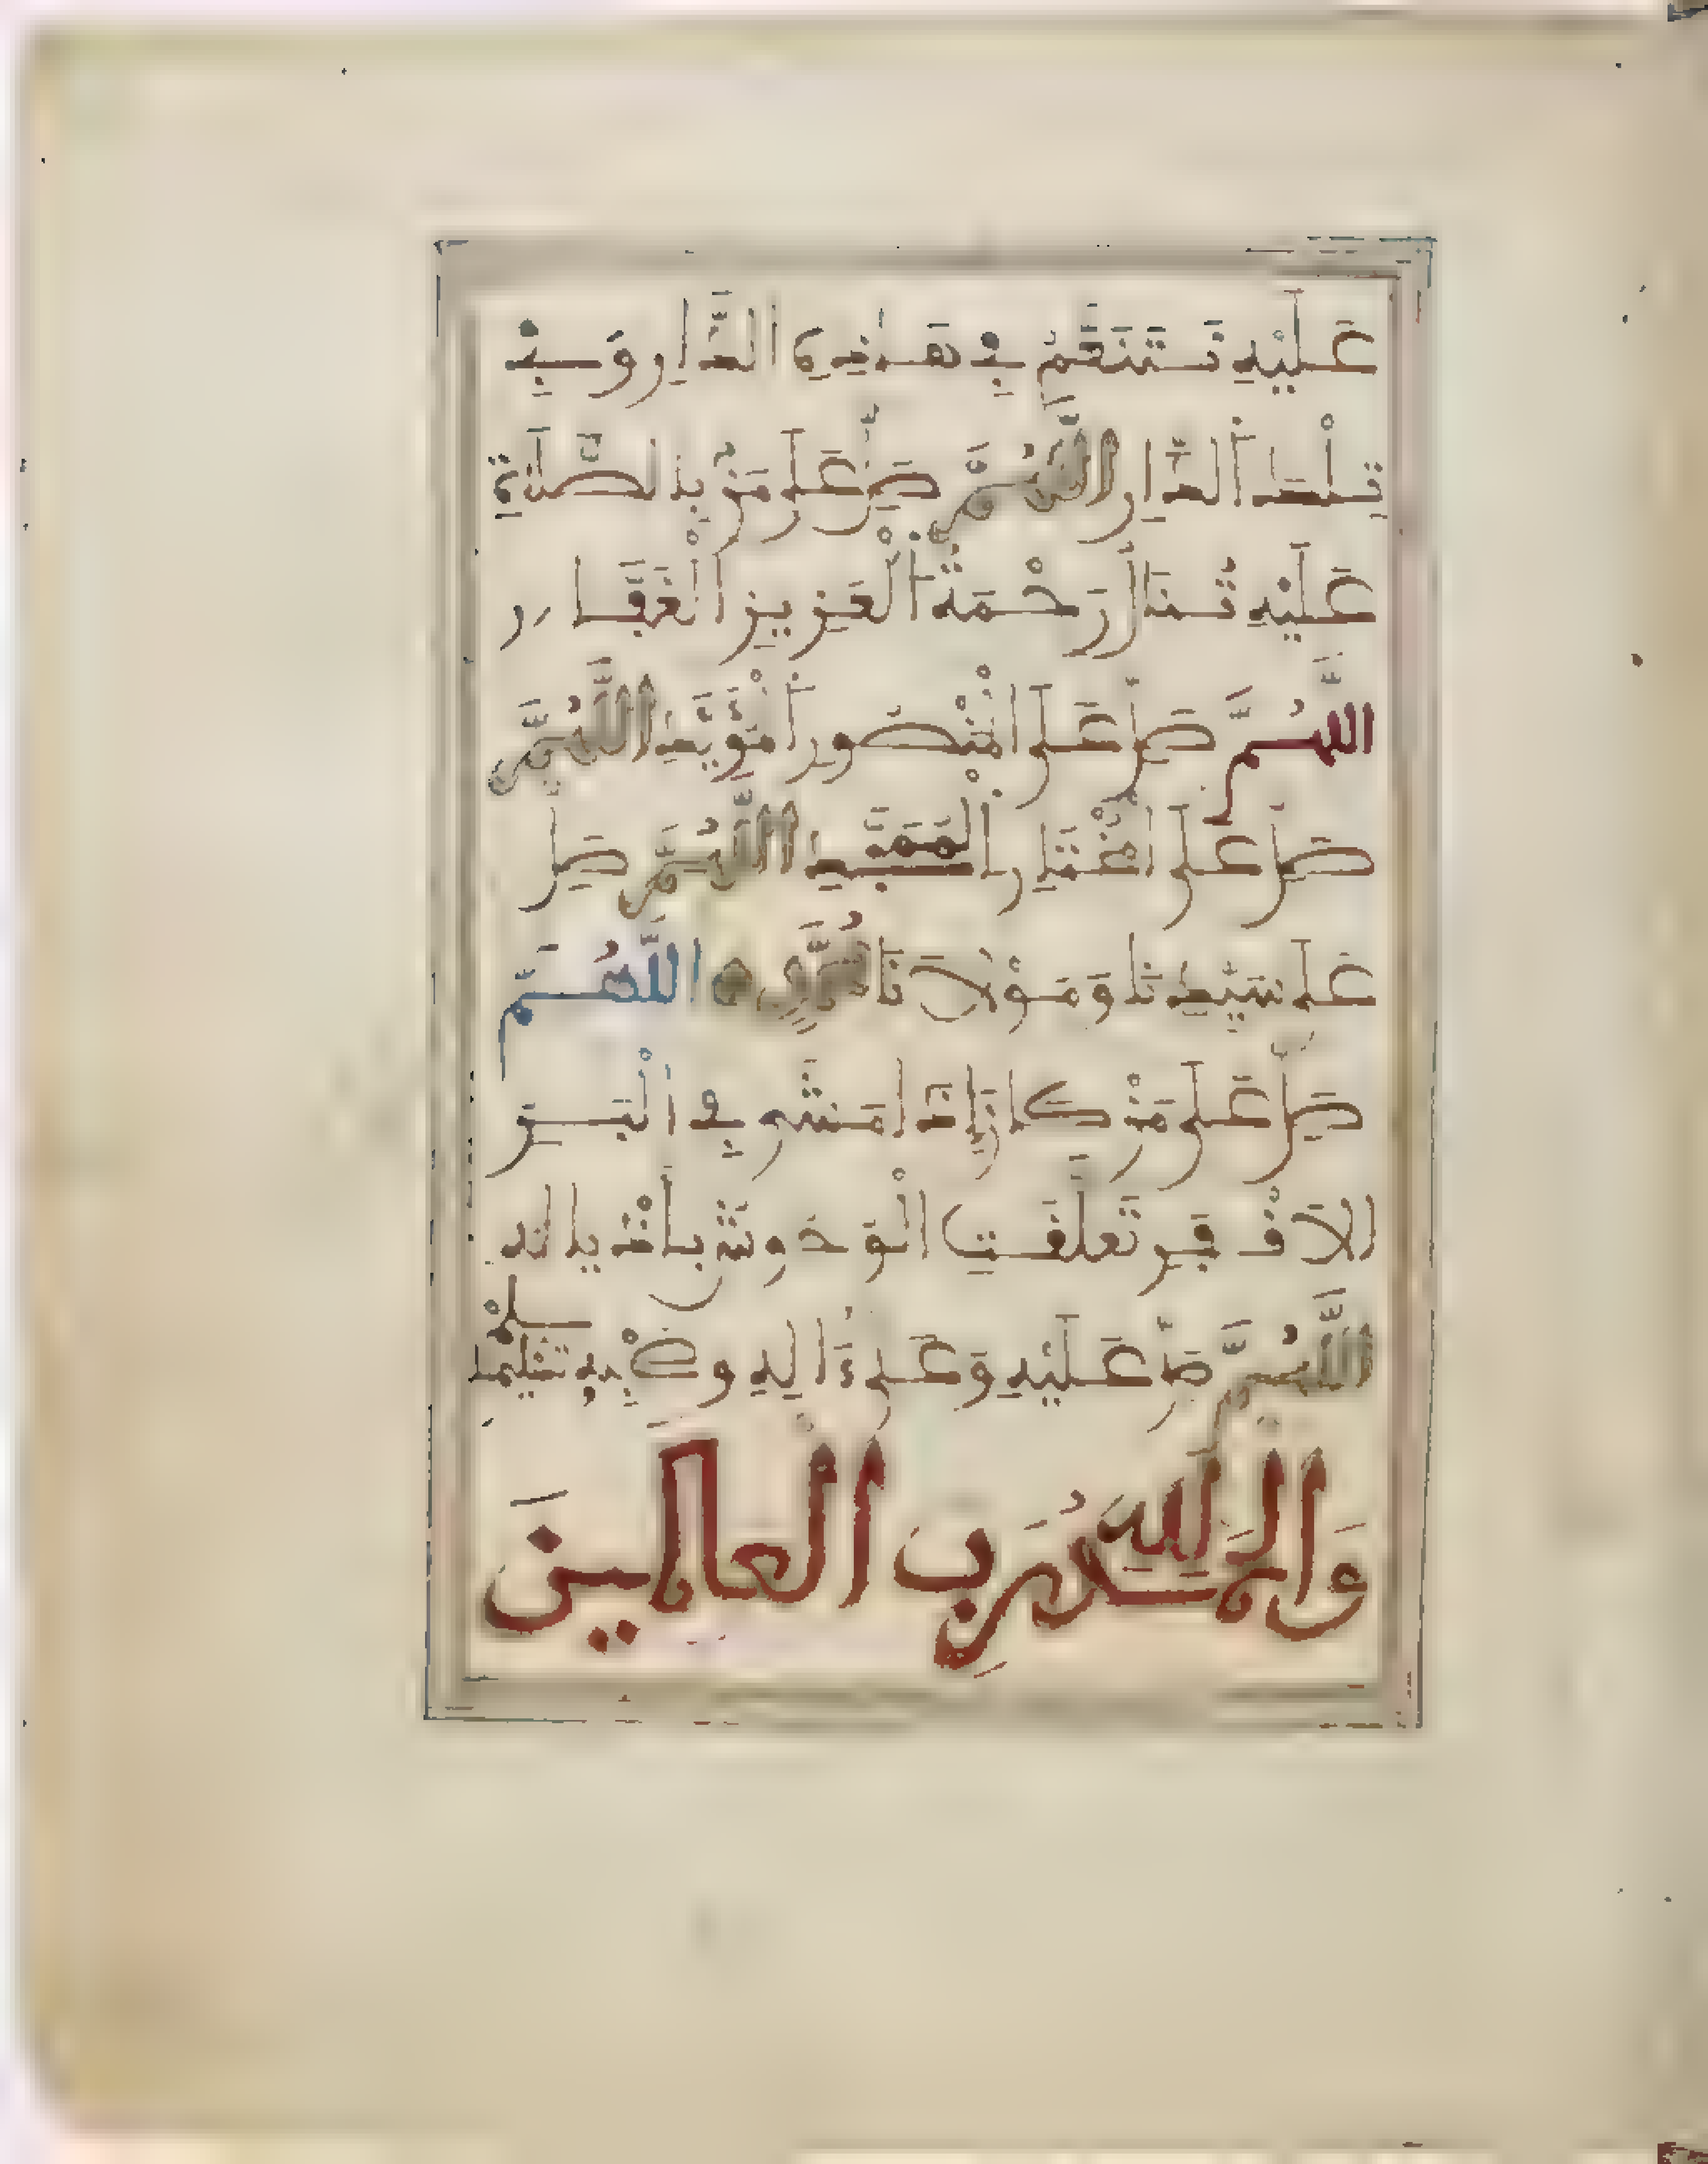 عَلَيْهِ نَسْتَنْقِمُ فِي هَذِهِ الدَّارِ وَفِي
تِلْكَ الدَّارِ اللَّهُمَّ صَلِّ عَلَى مَنْ بِالصَّلَاةِ
عَلَيْهِ تُنَالُ رَحْمَةُ الْعَزِيزِ الْغَفَّارِ
اللَّهُمَّ صَلِّ عَلَى الْمَنْصُورِ الْمُؤَيَّدِ اللَّهُمَّ
صَلِّ عَلَى الْمُخْتَارِ الْمُمَجَّدِ اللَّهُمَّ صَلِّ
عَلَى سَيِّدِنَا وَمَوْلَانَا مُحَمَّدٍ اللَّهُمَّ
صَلِّ عَلَى مَنْ كَانَ إِذَا مَشَى فِي الْبَرِّ
الْأَقْفَرِ تَعَلَّقَتِ الْوُحُوشُ بِأَذْيَالِهِ
اللَّهُمَّ صَلِّ عَلَيْهِ وَعَلَى ءَالِهِ وَصَحْبِهِ وَسَلِّمْ تَسْلِيمًا
وَالْحَمْدُ لِلَّهِ رَبِّ الْعَالَمِينَ